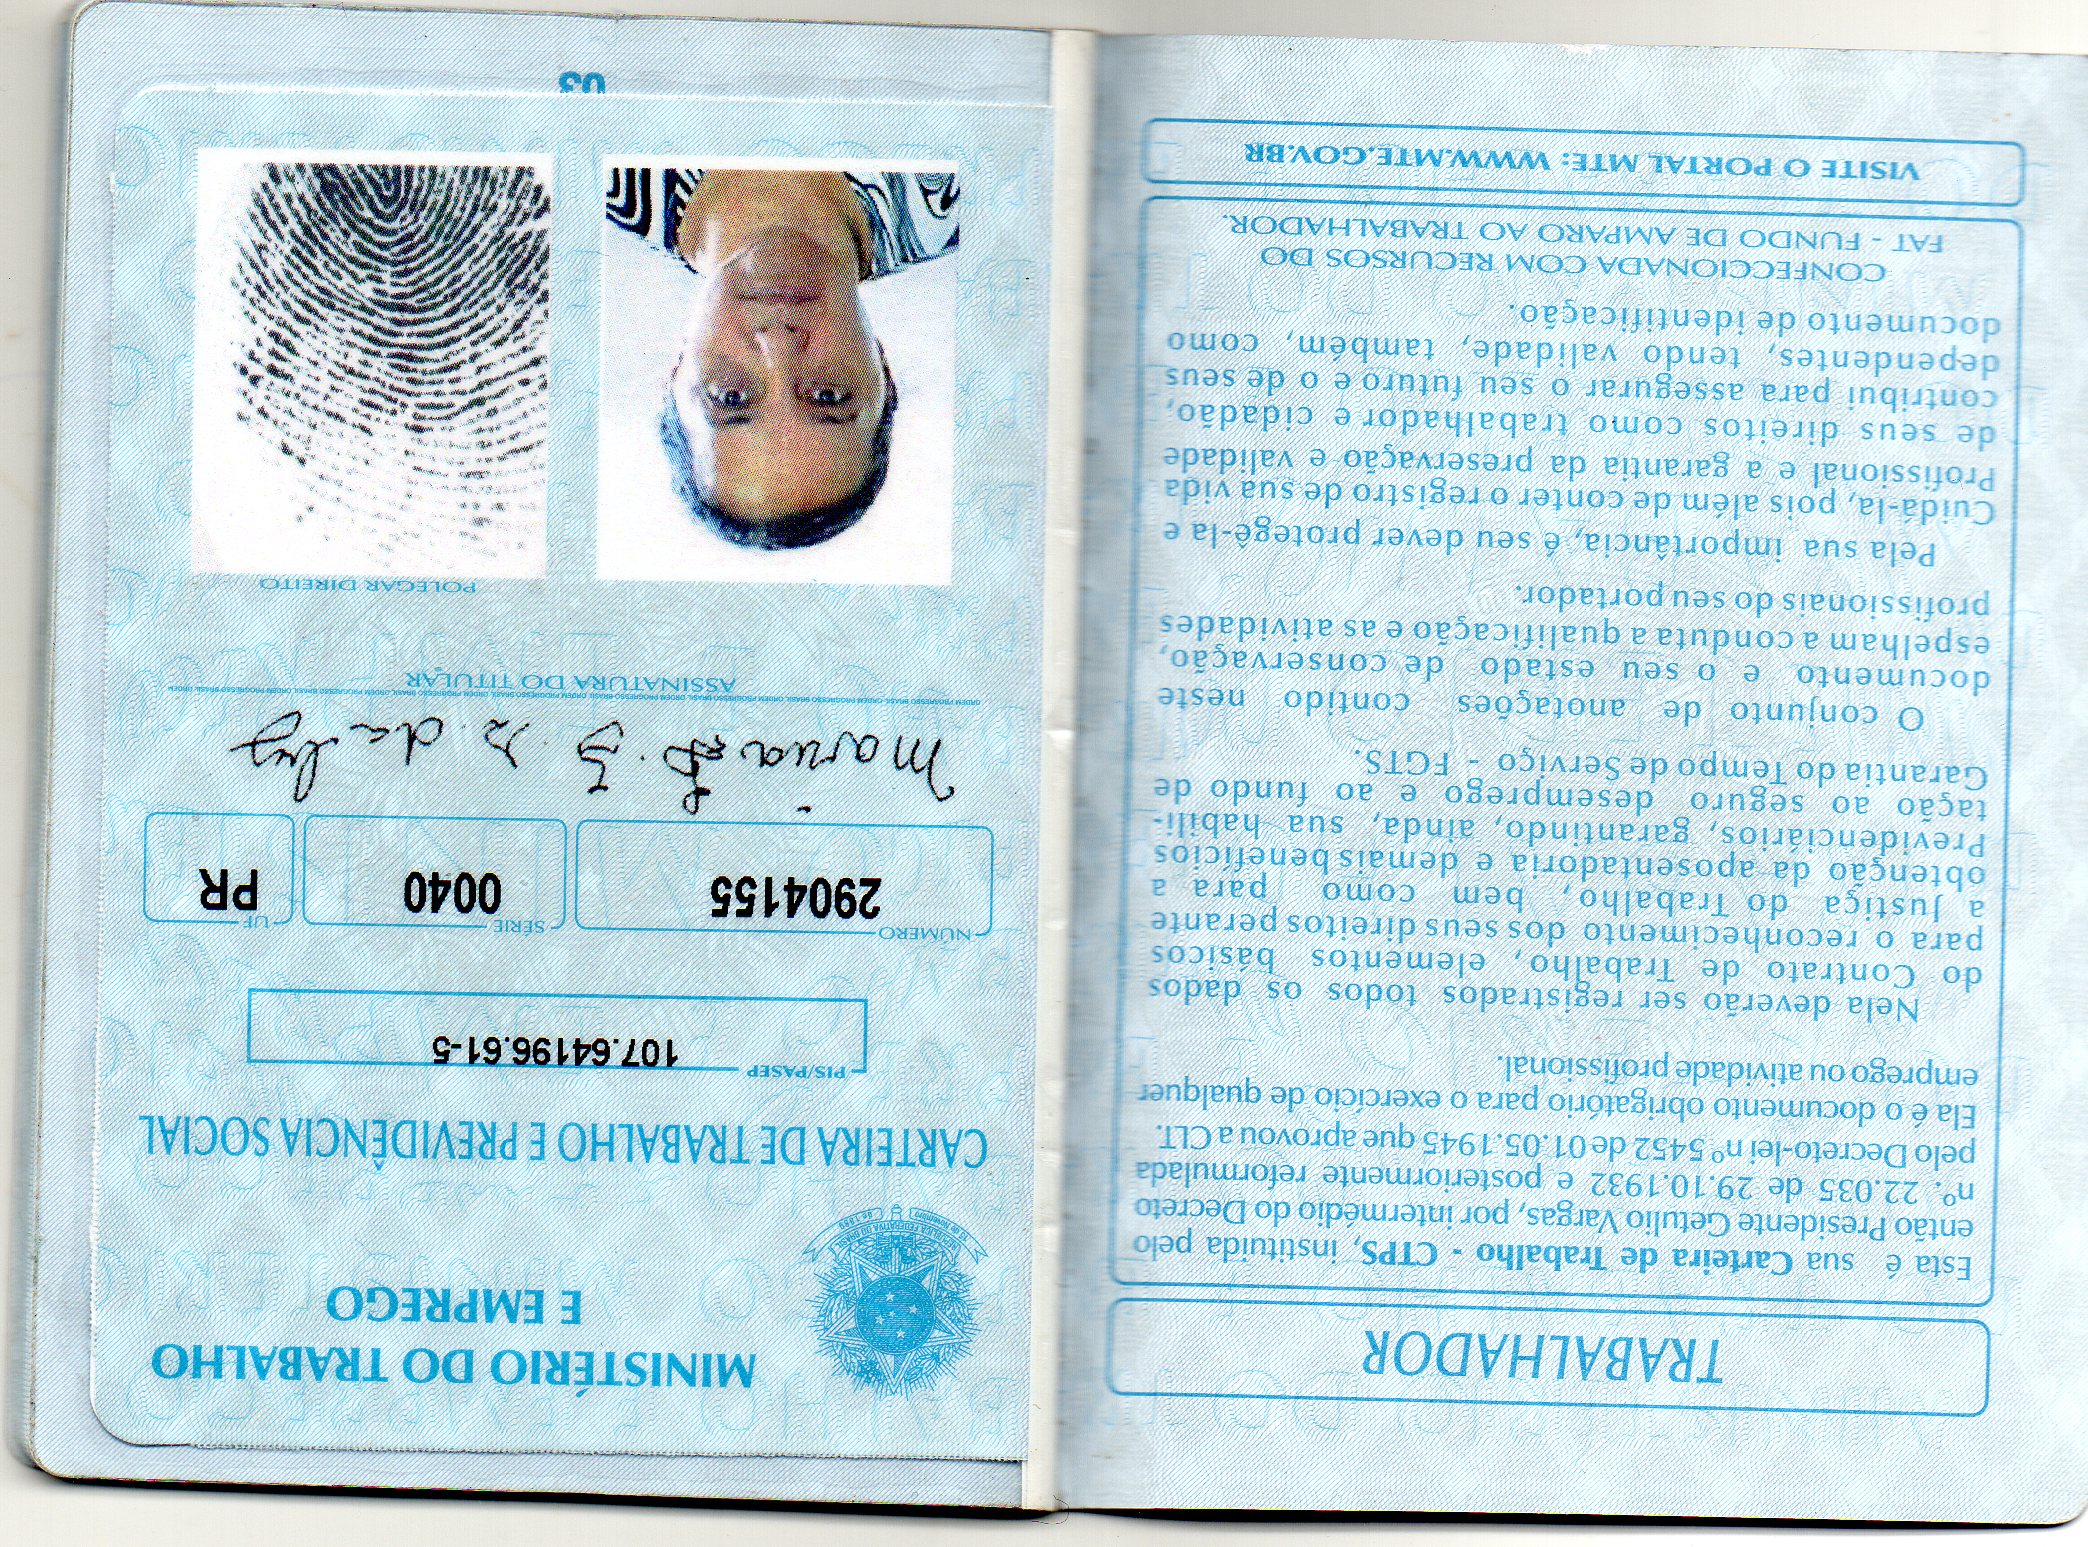 TRABALHADOR
Esta é sua Carteira de Trabalho - CTPS, instituída pelo
então Presidente Getulio Vargas, por intermédio do Decreto
nº. 22.035 de 29.10.1932 e posteriormente reformulada
pelo Decreto-lei nº 5452 de 01.05.1945 que aprovou a CLT.
Ela é o documento obrigatório para o exercício de qualquer
emprego ou atividade profissional.
Nela deverão ser registrados todos os dados
do Contrato de Trabalho, elementos básicos
para o reconhecimento dos seus direitos perante
a Justiça do Trabalho, bem como para a
obtenção da aposentadoria e demais benefícios
Previdenciários, garantindo, ainda, sua habili-
tação ao seguro desemprego e ao fundo de
Garantia do Tempo de Serviço - FGTS.
O conjunto de anotações contido neste
documento e o seu estado de conservação,
espelham a conduta a qualificação e as atividades
profissionais do seu portador.
Pela sua importância, é seu dever protegê-la e
Cuidá-la, pois além de conter o registro de sua vida
Profissional e a garantia da preservação e validade
de seus direitos como trabalhador e cidadão,
contribui para assegurar o seu futuro e o de seus
dependentes, tendo validade, também, como
documento de identificação.
CONFECCIONADA COM RECURSOS DO
FAT - FUNDO DE AMPARO AO TRABALHADOR.
VISITE O PORTAL MTE: WWW.MTE.GOV.BR
MINISTÉRIO DO TRABALHO
E EMPREGO
REPÚBLICA FEDERATIVA DO BRASIL
15 de Novembro de 1889
CARTEIRA DE TRABALHO E PREVIDÊNCIA SOCIAL
PIS/PASEP
107.64196.61-5
NÚMERO SÉRIE UF
2904155 0040 PR
Maria da Luz
ASSINATURA DO TITULAR
POLEGAR DIREITO
03